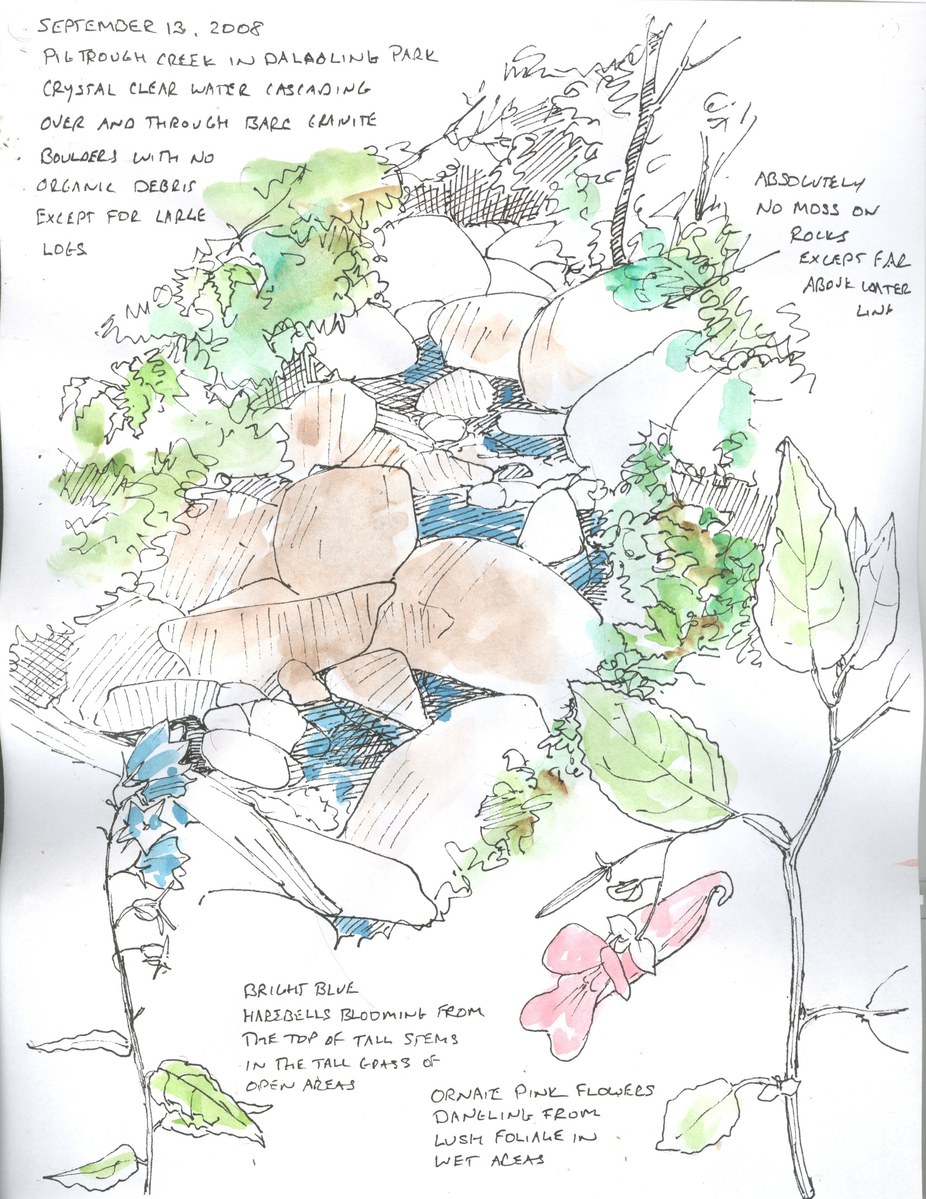 SEPTEMBER 13, 2008
PIG TROUGH CREEK IN DALAOLING PARK
CRYSTAL CLEAR WATER CASCADING
OVER AND THROUGH BARE GRANITE
BOULDERS WITH NO
ORGANIC DEBRIS
EXCEPT FOR LARGE
LOGS
ABSOLUTELY
NO MOSS ON
ROCKS
EXCEPT FAR
ABOVE WATER
LINE
BRIGHT BLUE
HAREBELLS BLOOMING FROM
THE TOP OF TALL STEMS
IN THE TALL GRASS OF
OPEN AREAS
ORNATE PINK FLOWERS
DANGLING FROM
LUSH FOLIAGE IN
WET AREAS